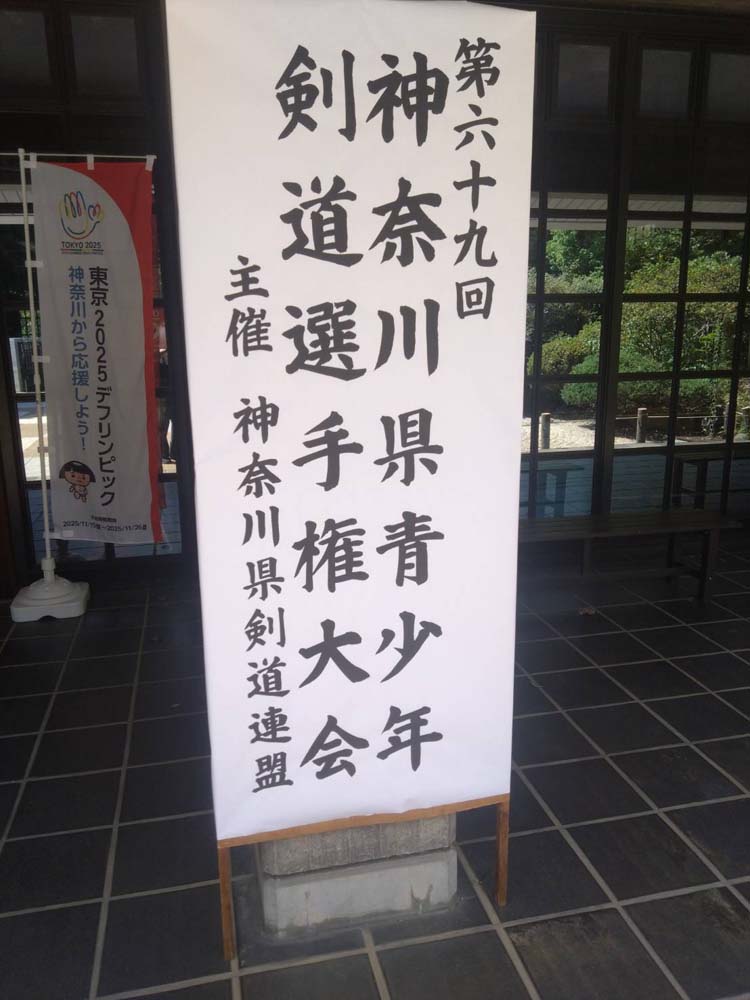 第六十九回
神奈川県青少年
剣道選手権大会
主催 神奈川県剣道連盟
TOKYO 2025
東京2025デフリンピック
神奈川から応援しよう!